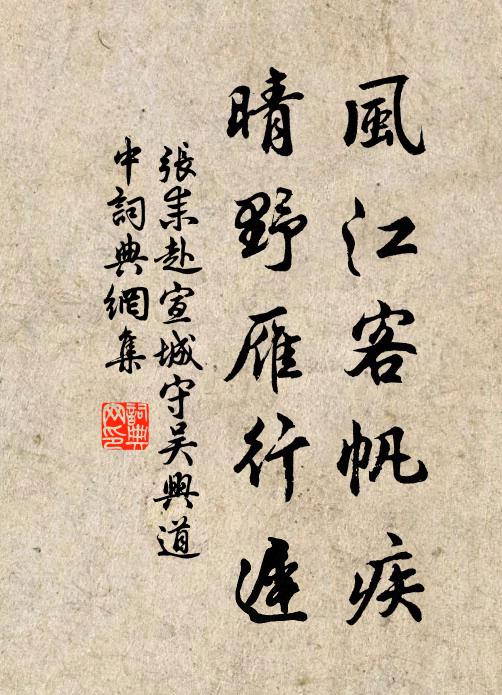 風江客帆疾
晴野雁行遲
張耒赴宣城守吳興道
中詞典網集
詞典
网印